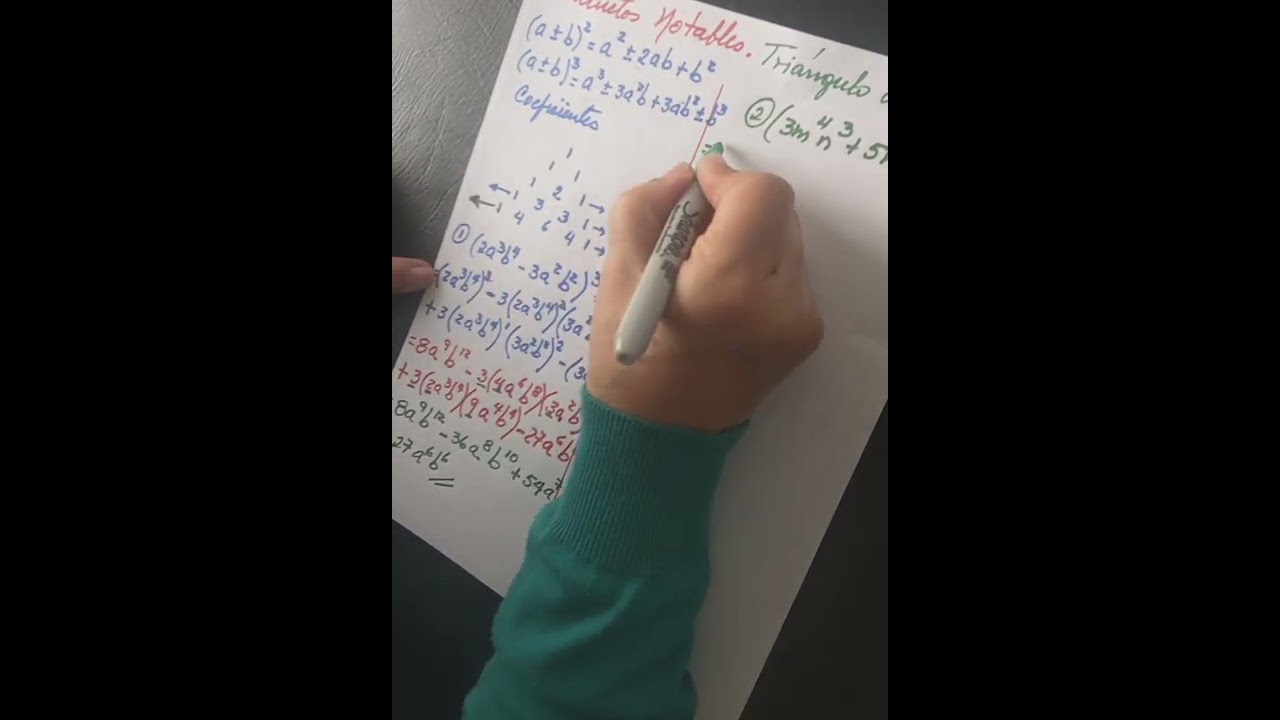 Notables. Triángulo
(a ± b)² = a² ± 2ab + b²
(a ± b)³ = a³ ± 3a²b + 3ab² ± b³
Coeficientes
1
1 1
1 2 1
1 3 3 1
1 4 6 4 1
① (2a³b⁴ - 3a²b²)³
=(2a³b⁴)³ - 3(2a³b⁴)²(3a²
+ 3(2a³b⁴)¹(3a²b²)² - (3
= 8a⁹b¹² - 3(4a⁶b⁸)(3a²b
+ 3(2a³b⁴)(9a⁴b⁴) - 27a⁶b
8a⁹b¹² - 36a⁸b¹⁰ + 54a⁷
27a⁶b⁶
② (3m⁴n³ + 5
Sharpie